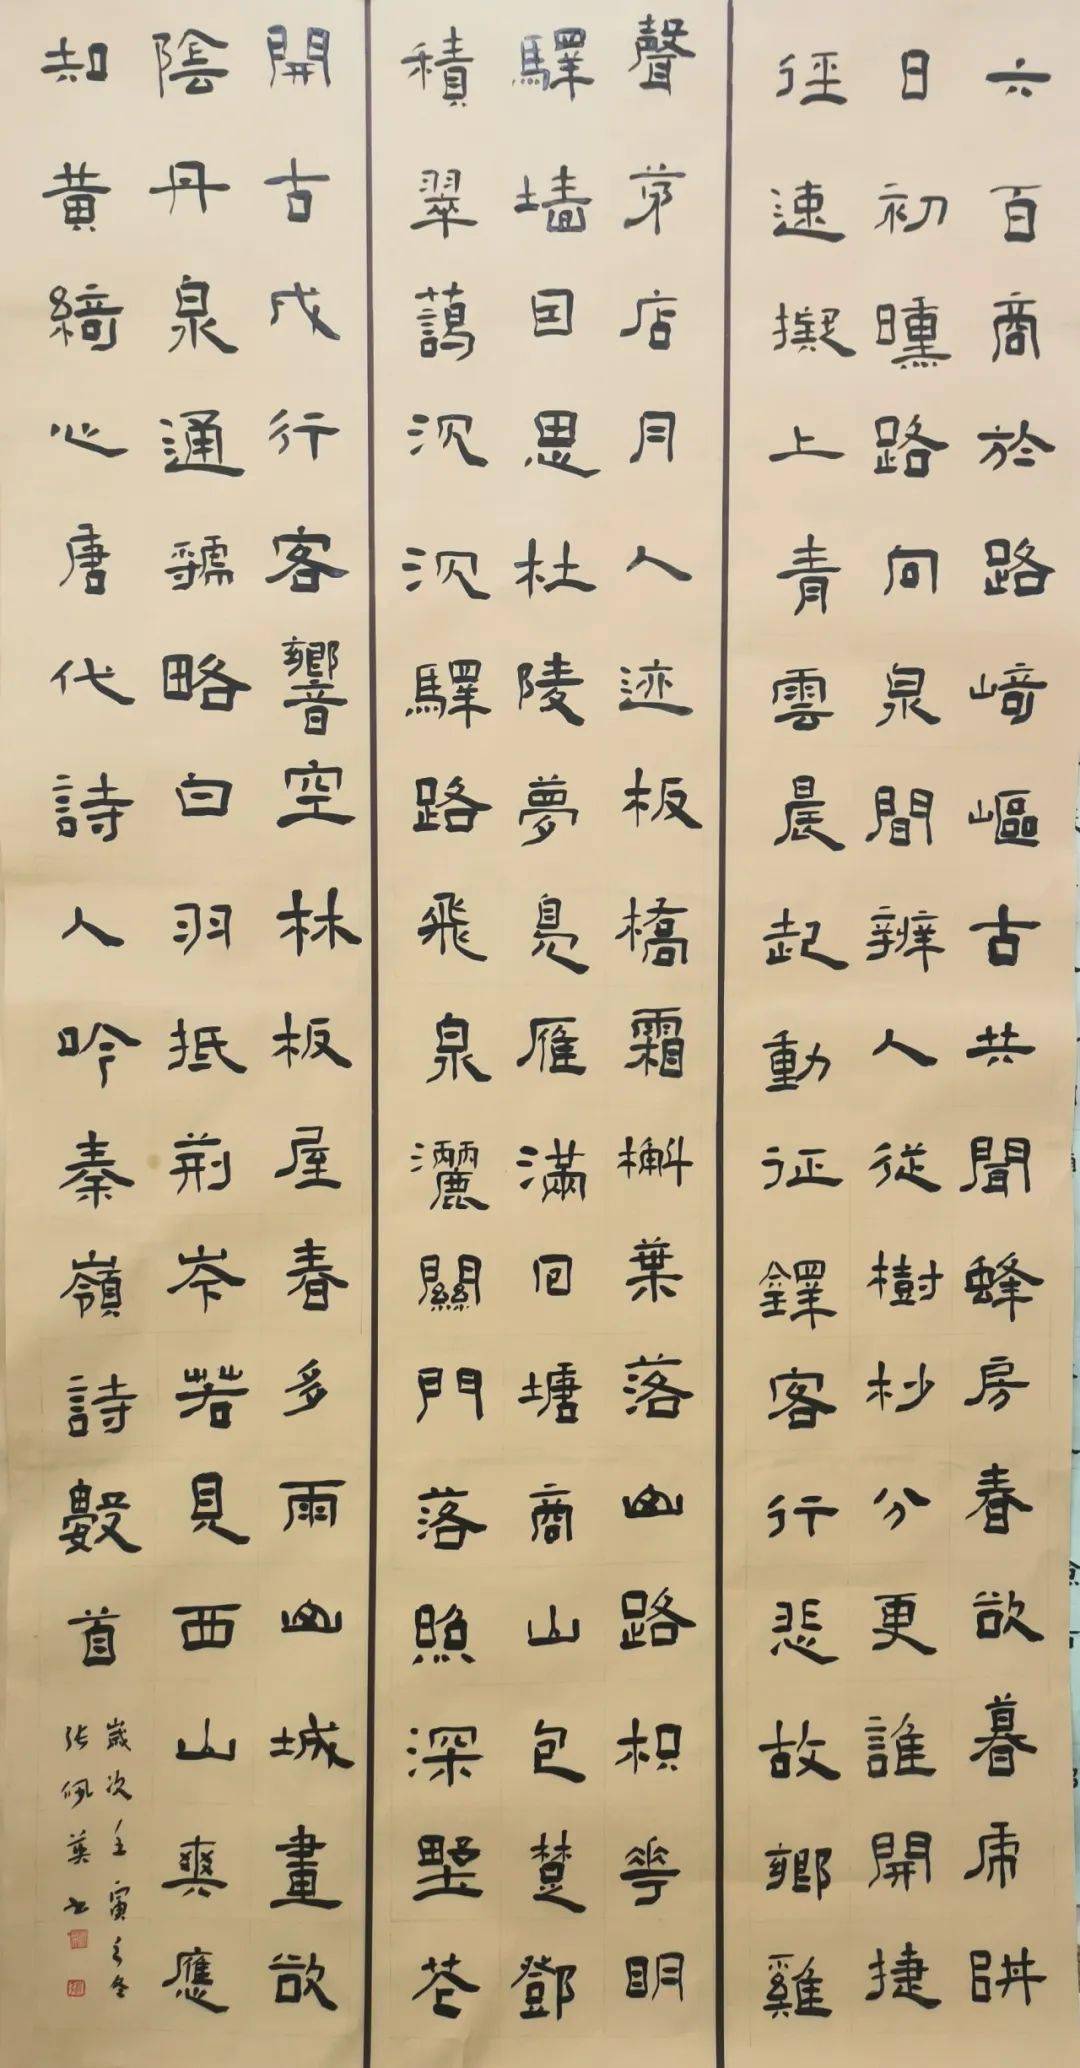 六百商於路崎嶇古共聞蜂房春欲暮虎阱
日初曛路向泉間辨人從樹杪分更誰開捷
徑速擬上青雲晨起動征鐸客行悲故鄉雞
聲茅店月人迹板橋霜槲葉落山路枳花明
驛墻因思杜陵夢鳧雁滿回塘商山包楚鄧
積翠藹沉沉驛路飛泉灑關門落照深野花
開古戍行客響空林板屋春多雨山城晝欲
陰丹泉通虢略白羽抵荊岑若見西山爽應
知黃綺心唐代詩人吟秦嶺詩數首
歲次壬寅之冬
張佩英書